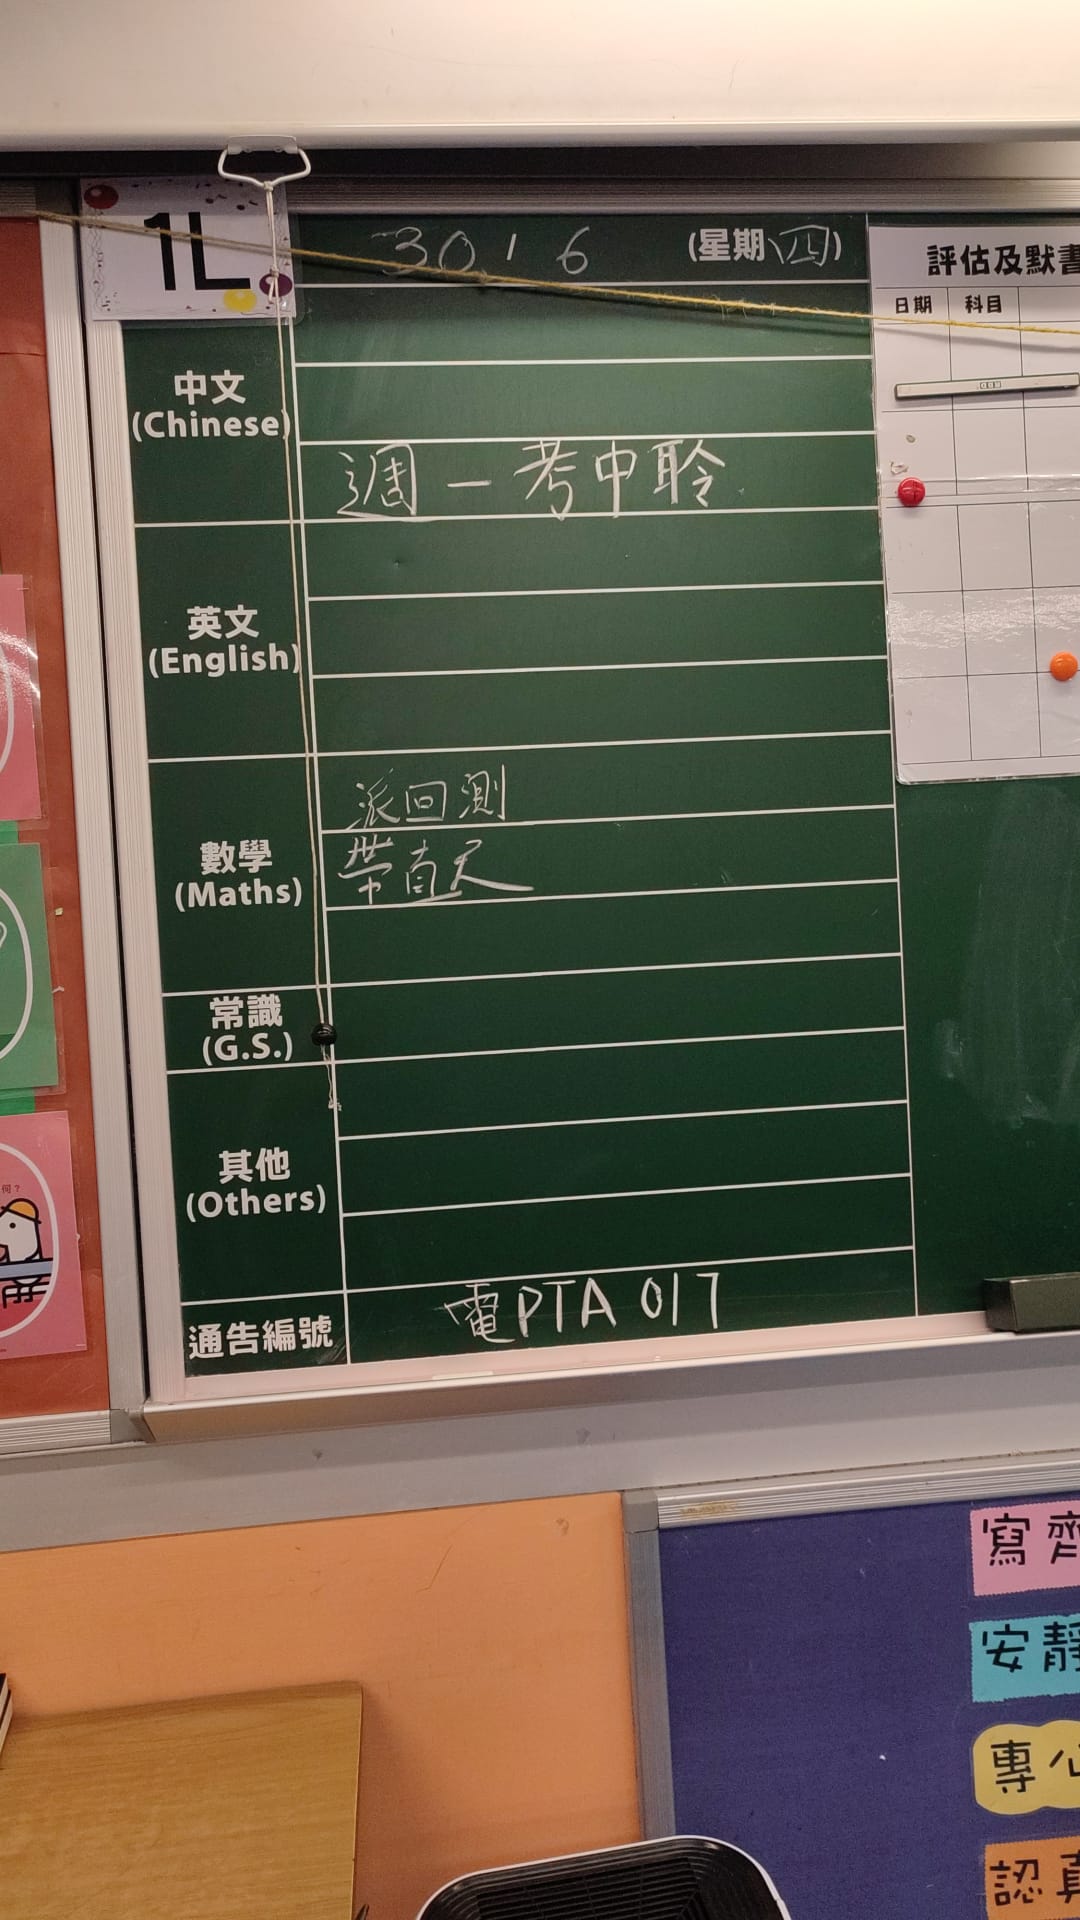 1L
30 1 6 (星期四)
評估及默書
日期 科目
中文
(Chinese)
週一考中聆
英文
(English)
數學
(Maths)
派回測
帶百天
常識
(G.S.)
其他
(Others)
通告編號
電PTA 017
何?
寫齊
安靜
專心
認真